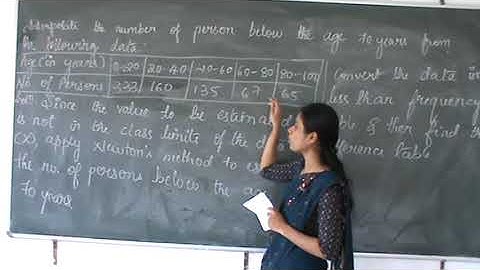 Interpolate the number of person below the age 70 years from
the following data:
Age (in years) 0-20 20-40 40-60 60-80 80-100
No of Persons 333 160 135 67 65
Convert the data in
less than frequency
table & then find th
difference table
Since the value to be estimat
is not in the class limits of the
(x), apply Newton's method to es
the no. of persons below the age
70 years